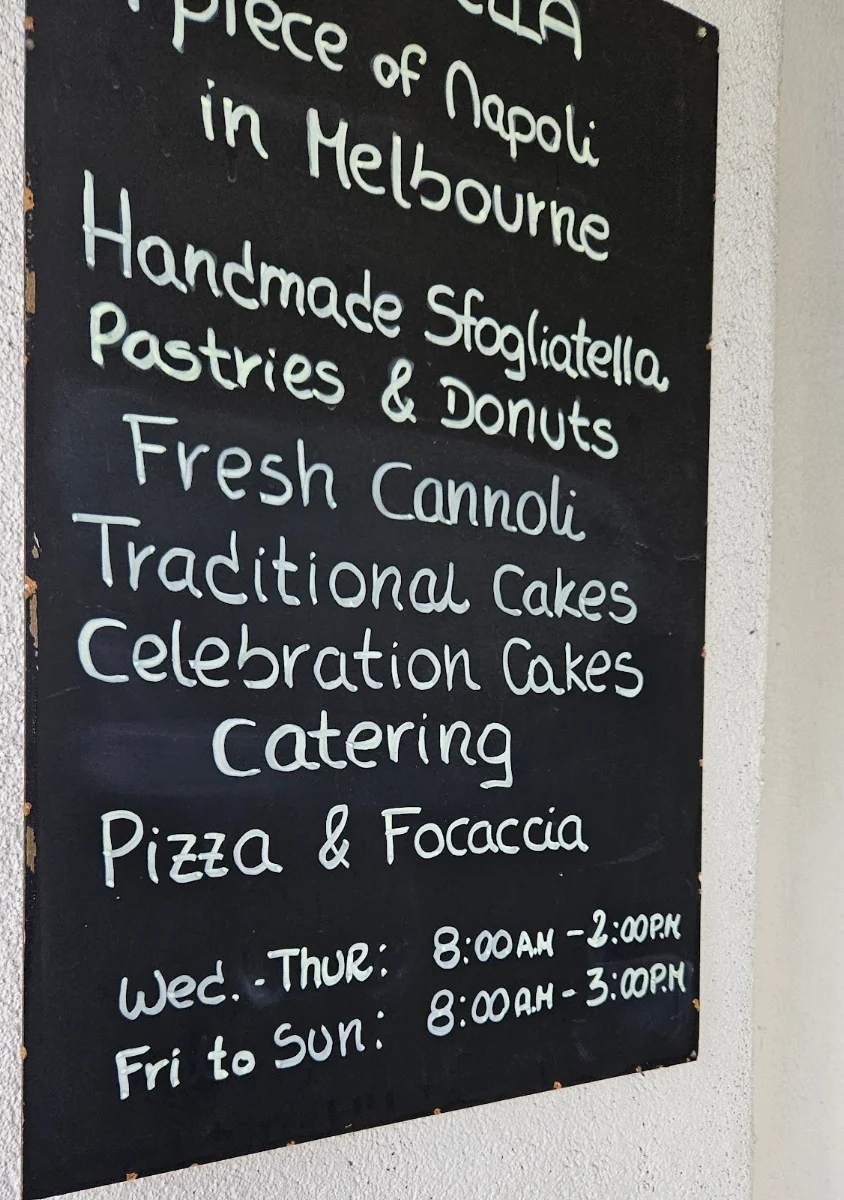 piece of Napoli
in Melbourne
Handmade Sfogliatella
Pastries & Donuts
Fresh Cannoli
Traditional Cakes
Celebration Cakes
Catering
Pizza & Focaccia
Wed.-Thur: 8:00A.M - 2:00P.M
Fri to Sun: 8:00A.M - 3:00P.M